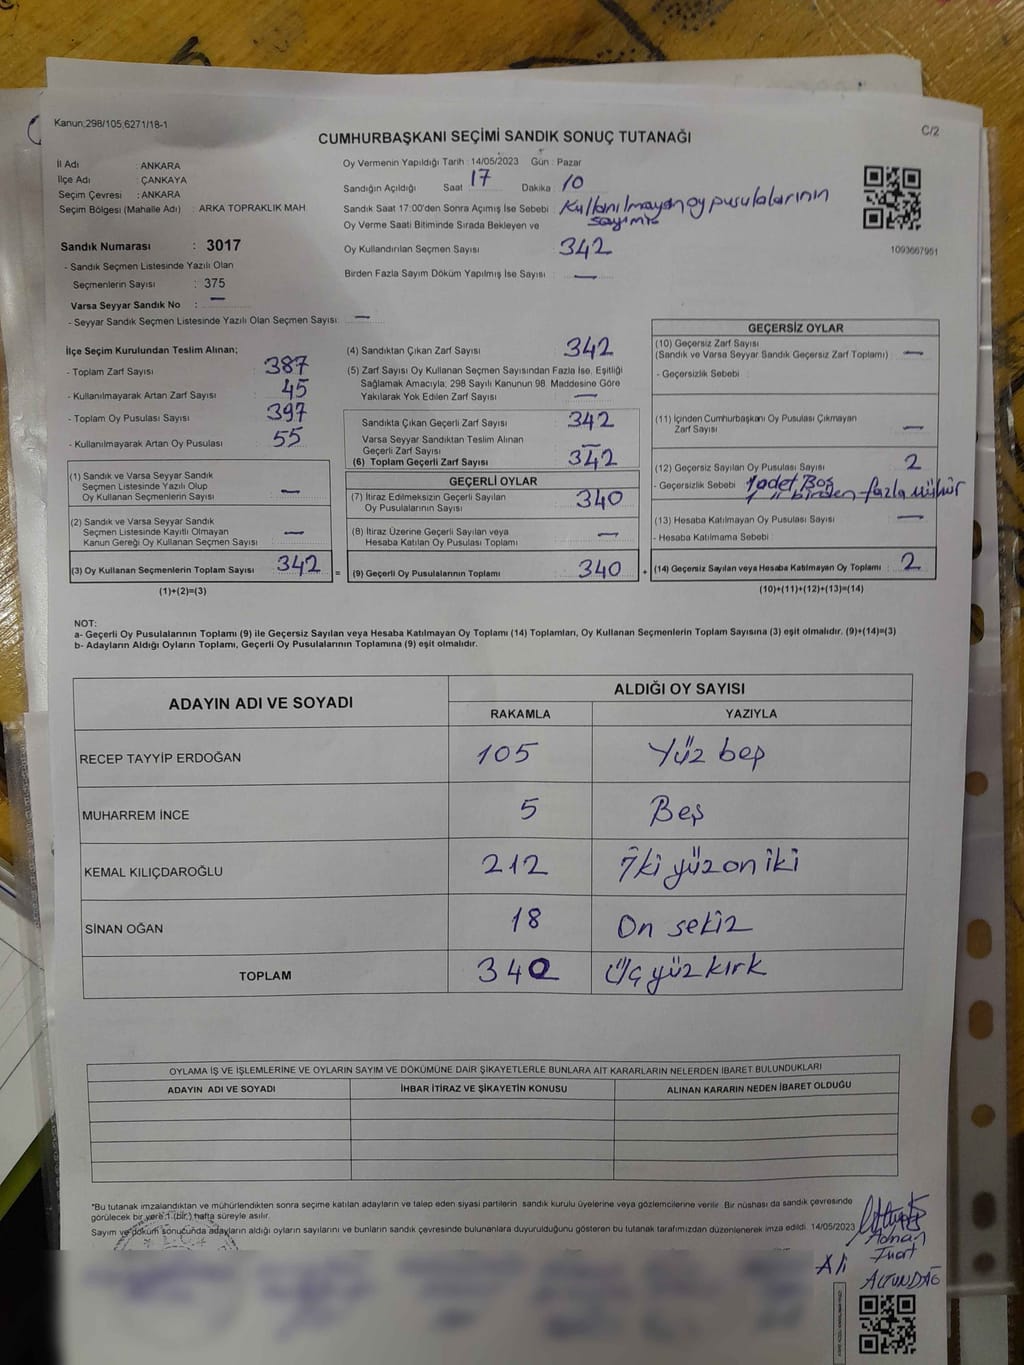 Kanun;298/105,6271/18-1
C/2
CUMHURBAŞKANI SEÇİMİ SANDIK SONUÇ TUTANAĞI
İl Adı : ANKARA
İlçe Adı : ÇANKAYA
Seçim Çevresi : ANKARA
Seçim Bölgesi (Mahalle Adı) : ARKA TOPRAKLIK MAH
Sandık Numarası : 3017
- Sandık Seçmen Listesinde Yazılı Olan
Seçmenlerin Sayısı : 375
Varsa Seyyar Sandık No : —
- Seyyar Sandık Seçmen Listesinde Yazılı Olan Seçmen Sayısı: —
Oy Vermenin Yapıldığı Tarih : 14/05/2023 Gün : Pazar
Sandığın Açıldığı Saat : 17 Dakika : 10
Sandık Saat 17:00'den Sonra Açımış İse Sebebi : Kullanılmayan oy pusulalarının
sayımı
Oy Verme Saati Bitiminde Sırada Bekleyen ve
Oy Kullandırılan Seçmen Sayısı 342
Birden Fazla Sayım Döküm Yapılmış İse Sayısı : —
1093667951
İlçe Seçim Kurulundan Teslim Alınan;
- Toplam Zarf Sayısı : 387
- Kullanılmayarak Artan Zarf Sayısı : 45
- Toplam Oy Pusulası Sayısı : 397
- Kullanılmayarak Artan Oy Pusulası : 55
(1) Sandık ve Varsa Seyyar Sandık
Seçmen Listesinde Yazılı Olup
Oy Kullanan Seçmenlerin Sayısı : —
(2) Sandık ve Varsa Seyyar Sandık
Seçmen Listesinde Kayıtlı Olmayan
Kanun Gereği Oy Kullanan Seçmen Sayısı : —
(3) Oy Kullanan Seçmenlerin Toplam Sayısı : 342
(1)+(2)=(3)
=
(4) Sandıktan Çıkan Zarf Sayısı : 342
(5) Zarf Sayısı Oy Kullanan Seçmen Sayısından Fazla İse, Eşitliği
Sağlamak Amacıyla; 298 Sayılı Kanunun 98. Maddesine Göre
Yakılarak Yok Edilen Zarf Sayısı : —
Sandıkta Çıkan Geçerli Zarf Sayısı : 342
Varsa Seyyar Sandıktan Teslim Alınan
Geçerli Zarf Sayısı : —
(6) Toplam Geçerli Zarf Sayısı : 342
GEÇERLİ OYLAR
(7) İtiraz Edilmeksizin Geçerli Sayılan
Oy Pusulalarının Sayısı : 340
(8) İtiraz Üzerine Geçerli Sayılan veya
Hesaba Katılan Oy Pusulası Toplamı : —
(9) Geçerli Oy Pusulalarının Toplamı : 340
+
GEÇERSİZ OYLAR
(10) Geçersiz Zarf Sayısı
(Sandık ve Varsa Seyyar Sandık Geçersiz Zarf Toplamı) : —
- Geçersizlik Sebebi :
(11) İçinden Cumhurbaşkanı Oy Pusulası Çıkmayan
Zarf Sayısı : —
(12) Geçersiz Sayılan Oy Pusulası Sayısı : 2
- Geçersizlik Sebebi : 1 adet Boş
1 " birden fazla mühür
(13) Hesaba Katılmayan Oy Pusulası Sayısı : —
- Hesaba Katılmama Sebebi :
(14) Geçersiz Sayılan veya Hesaba Katılmayan Oy Toplamı : 2
(10)+(11)+(12)+(13)=(14)
NOT:
a- Geçerli Oy Pusulalarının Toplamı (9) ile Geçersiz Sayılan veya Hesaba Katılmayan Oy Toplamı (14) Toplamları, Oy Kullanan Seçmenlerin Toplam Sayısına (3) eşit olmalıdır. (9)+(14)=(3)
b- Adayların Aldığı Oyların Toplamı, Geçerli Oy Pusulalarının Toplamına (9) eşit olmalıdır.
ADAYIN ADI VE SOYADI ALDIĞI OY SAYISI
RAKAMLA YAZIYLA
RECEP TAYYİP ERDOĞAN 105 Yüz beş
MUHARREM İNCE 5 Beş
KEMAL KILIÇDAROĞLU 212 İki yüz on iki
SİNAN OĞAN 18 On sekiz
TOPLAM 340 Üç yüz kırk
OYLAMA İŞ VE İŞLEMLERİNE VE OYLARIN SAYIM VE DÖKÜMÜNE DAİR ŞİKAYETLERLE BUNLARA AİT KARARLARIN NELERDEN İBARET BULUNDUKLARI
ADAYIN ADI VE SOYADI İHBAR İTİRAZ VE ŞİKAYETİN KONUSU ALINAN KARARIN NEDEN İBARET OLDUĞU
*Bu tutanak imzalandıktan ve mühürlendikten sonra seçime katılan adayların ve talep eden siyasi partilerin sandık kurulu üyelerine veya gözlemcilerine verilir. Bir nüshası da sandık çevresinde
görülecek bir yere 1 (bir) hafta süreyle asılır.
Sayım ve döküm sonucunda adayların aldığı oyların sayılarını ve bunların sandık çevresinde bulunanlara duyurulduğunu gösteren bu tutanak tarafımızdan düzenlenerek imza edildi. 14/05/2023
Adnan
Ali
ALTUNDAĞ